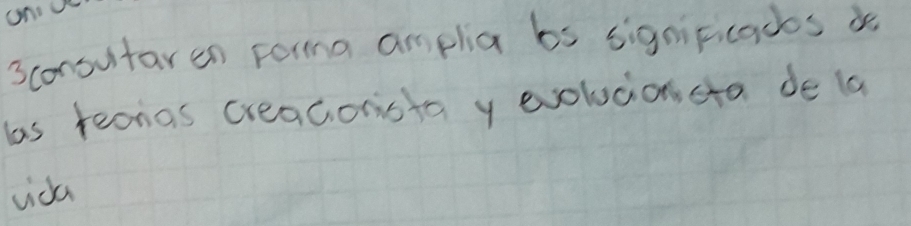 3consultar en forma amplia los significados de
las teorias creacionista y evolucionista de la
vida